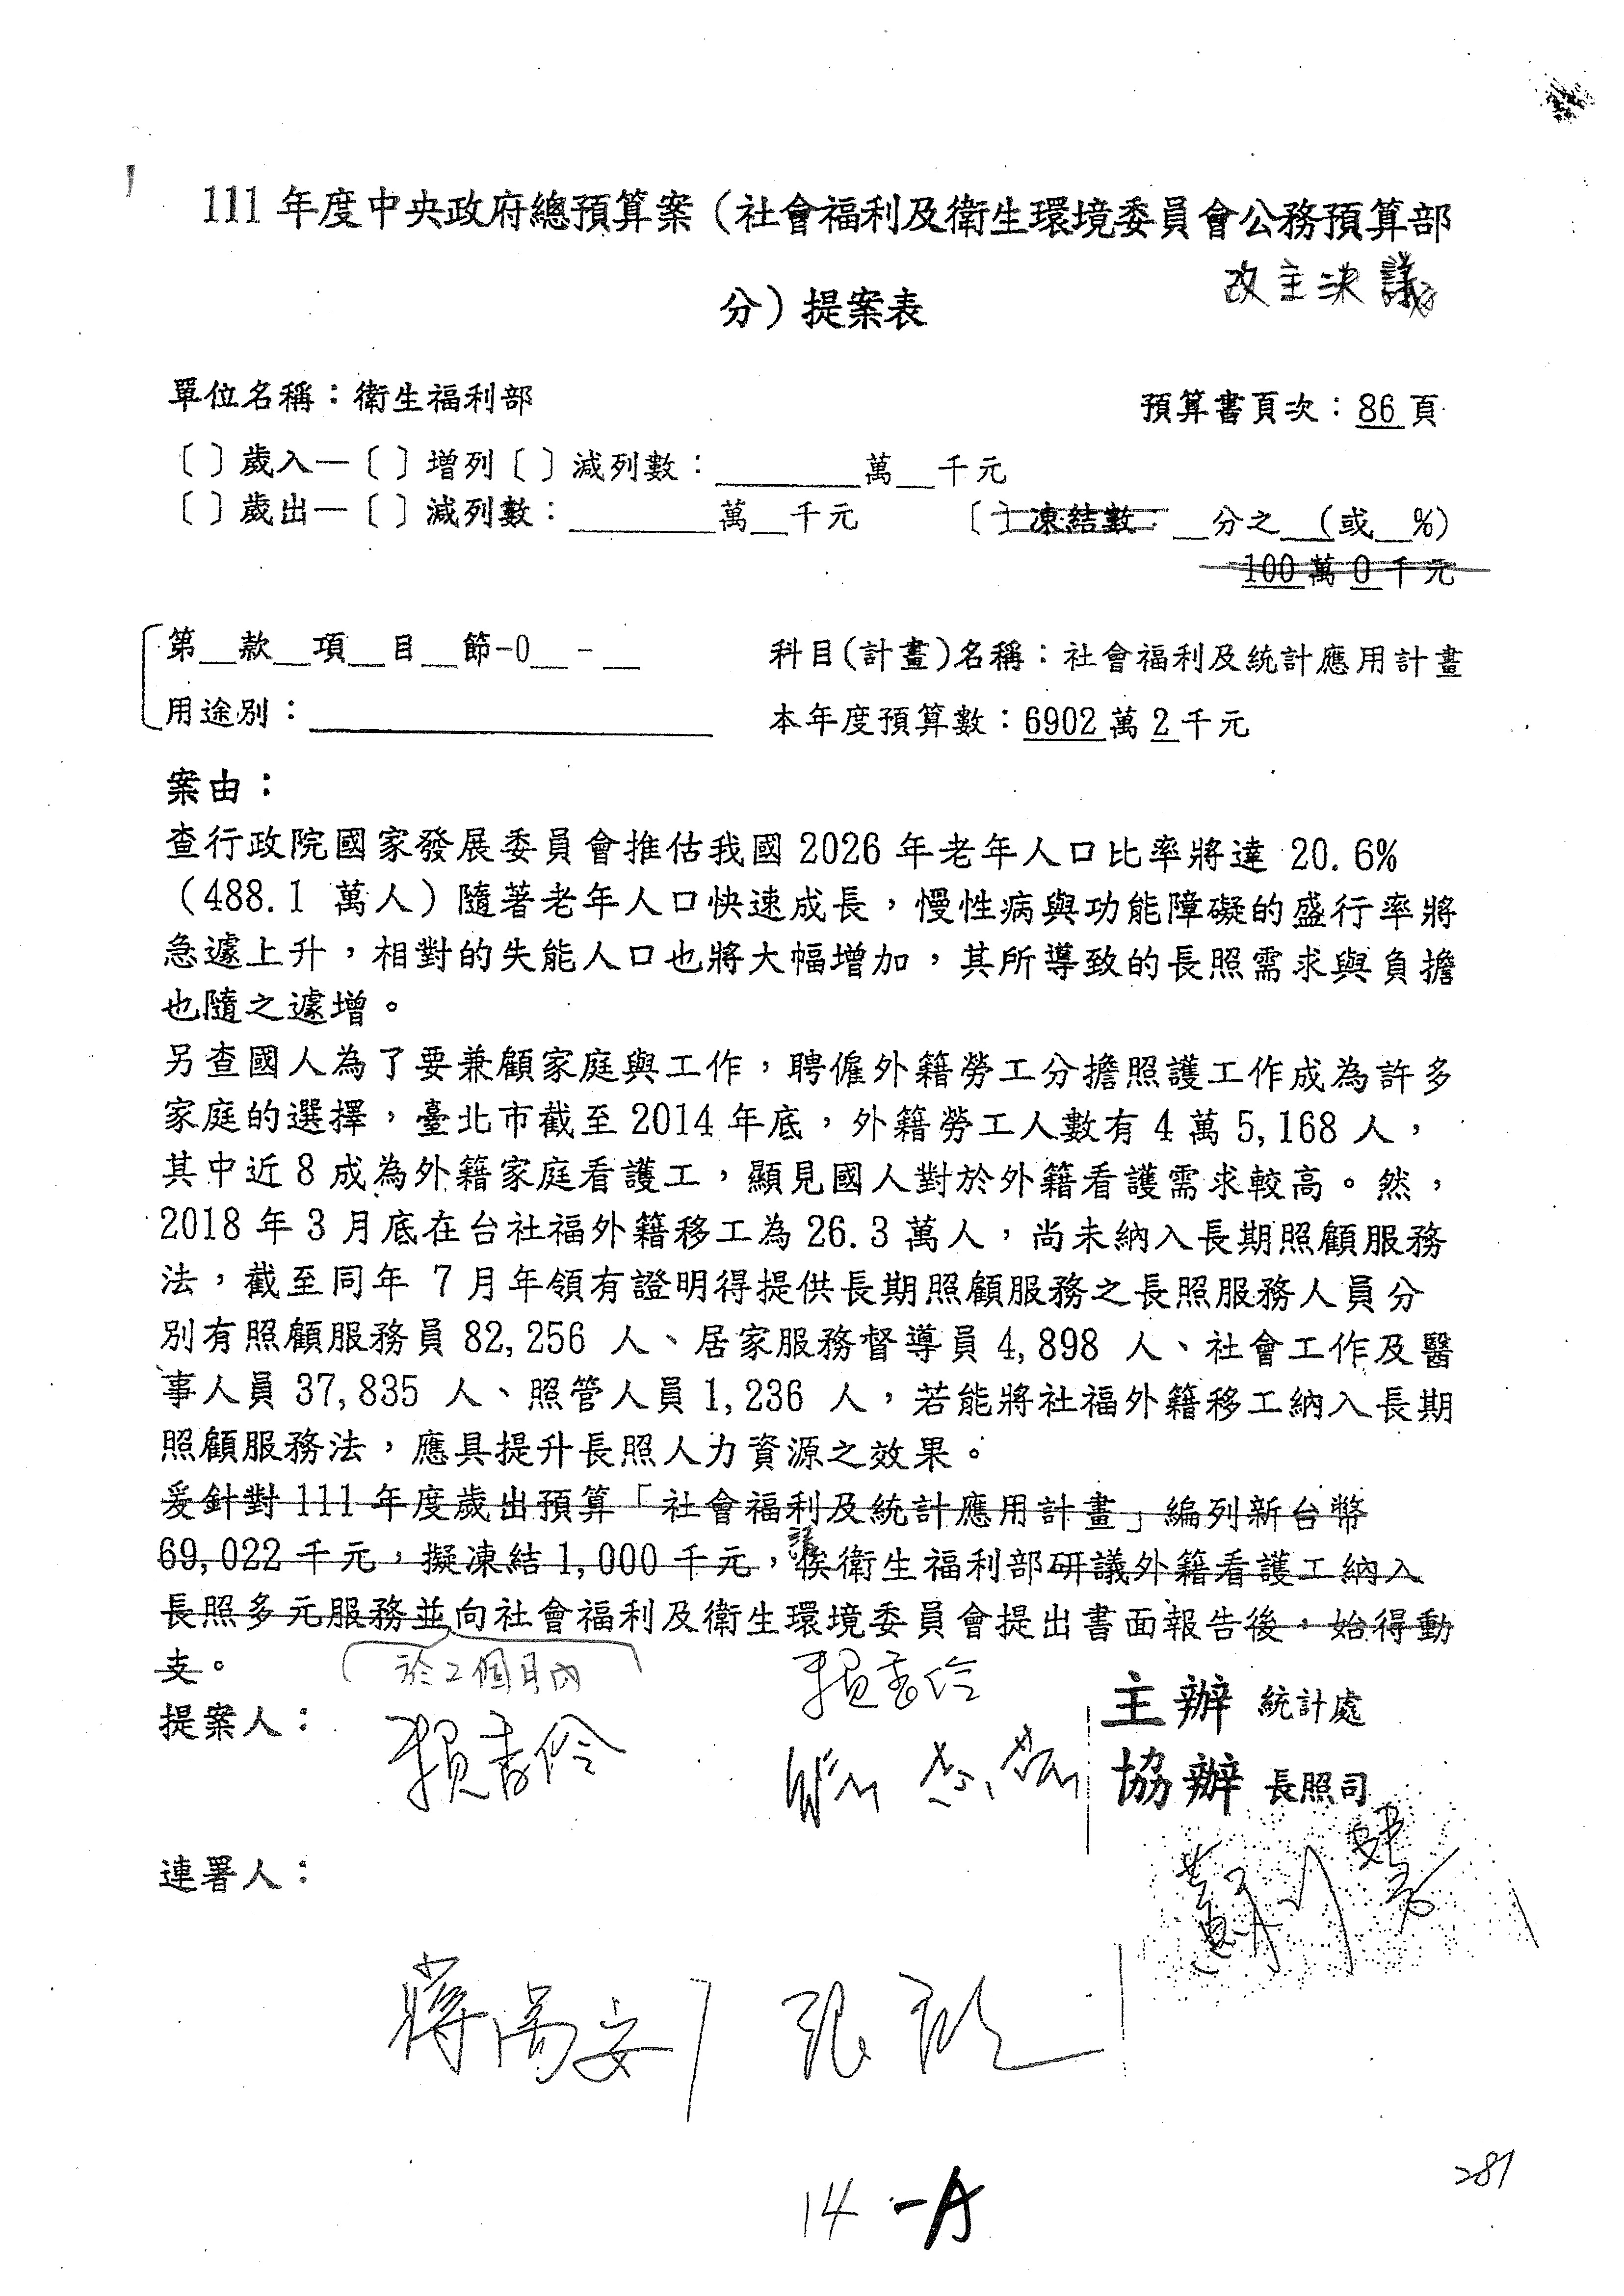 111 年度中央政府總預算案（社會福利及衛生環境委員會公務預算部
分）提案表
改主決議
單位名稱：衛生福利部
預算書頁次：86 頁
〔 〕歲入—〔 〕增列〔 〕減列數：________萬__千元
〔 〕歲出—〔 〕減列數：________萬__千元
〔 〕凍結數：__分之__(或__%)
100 萬 0 千元
第__款__項__目__節-0__-__
科目(計畫)名稱：社會福利及統計應用計畫
用途別：
本年度預算數：6902 萬 2 千元
案由：
查行政院國家發展委員會推估我國 2026 年老年人口比率將達 20.6%
（488.1 萬人）隨著老年人口快速成長，慢性病與功能障礙的盛行率將
急遽上升，相對的失能人口也將大幅增加，其所導致的長照需求與負擔
也隨之遽增。
另查國人為了要兼顧家庭與工作，聘僱外籍勞工分擔照護工作成為許多
家庭的選擇，臺北市截至 2014 年底，外籍勞工人數有 4 萬 5,168 人，
其中近 8 成為外籍家庭看護工，顯見國人對於外籍看護需求較高。然，
2018 年 3 月底在台社福外籍移工為 26.3 萬人，尚未納入長期照顧服務
法，截至同年 7 月年領有證明得提供長期照顧服務之長照服務人員分
別有照顧服務員 82,256 人、居家服務督導員 4,898 人、社會工作及醫
事人員 37,835 人、照管人員 1,236 人，若能將社福外籍移工納入長期
照顧服務法，應具提升長照人力資源之效果。
爰針對 111 年度歲出預算「社會福利及統計應用計畫」編列新台幣
請
69,022 千元，擬凍結 1,000 千元，俟衛生福利部研議外籍看護工納入
長照多元服務並向社會福利及衛生環境委員會提出書面報告後，始得動
支。
於2個月內
賴香伶
提案人：
賴香伶
主辦 統計處
協辦 長照司
連署人：
蔣萬安
281
14 -A